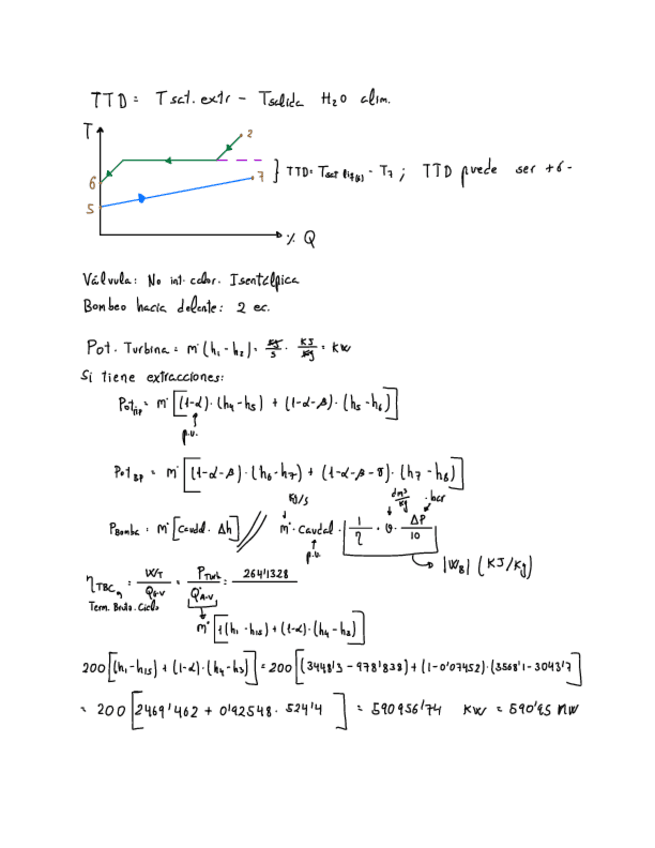 TTD = Tsat.extr - Tsalida H2O alim.
T
2
6
7
5
% Q
} TTD = Tsat liq(6) - T7 ; TTD puede ser + ó -
Válvula: No int. calor. Isentálpica
Bombeo hacia delante: 2 ec.
Pot. Turbina = m˙ (h1 - h2) = kg/s · KJ/kg = KW
Si tiene extracciones:
Pot = m˙ [(1-α)·(h4-h5) + (1-α-β)·(h5-h6)]
p.u.
Pot BP = m˙ [(1-α-β)·(h6-h7) + (1-α-β-γ)·(h7-h8)]
kg/s dm3/kg · bar
PBomba = m˙ [caudal · Δh] // m˙ · caudal · | 1/η · υ · ΔP/10 |
p.u. |WB| (KJ/kg)
ηTBC = WT/QG-V = PTurb/Q˙A-V = 264'1328
Term. Bruto. Ciclo
m˙ [1(h1 - h15) + (1-α)·(h4-h3)]
200 [(h1-h15) + (1-α)·(h4-h3)] = 200 [(3448'3 - 978'838) + (1-0'07452)·(3568'1 - 3043'7)]
= 200 [2469'462 + 0'92548 · 524'4] = 590956'74 KW = 590'95 MW